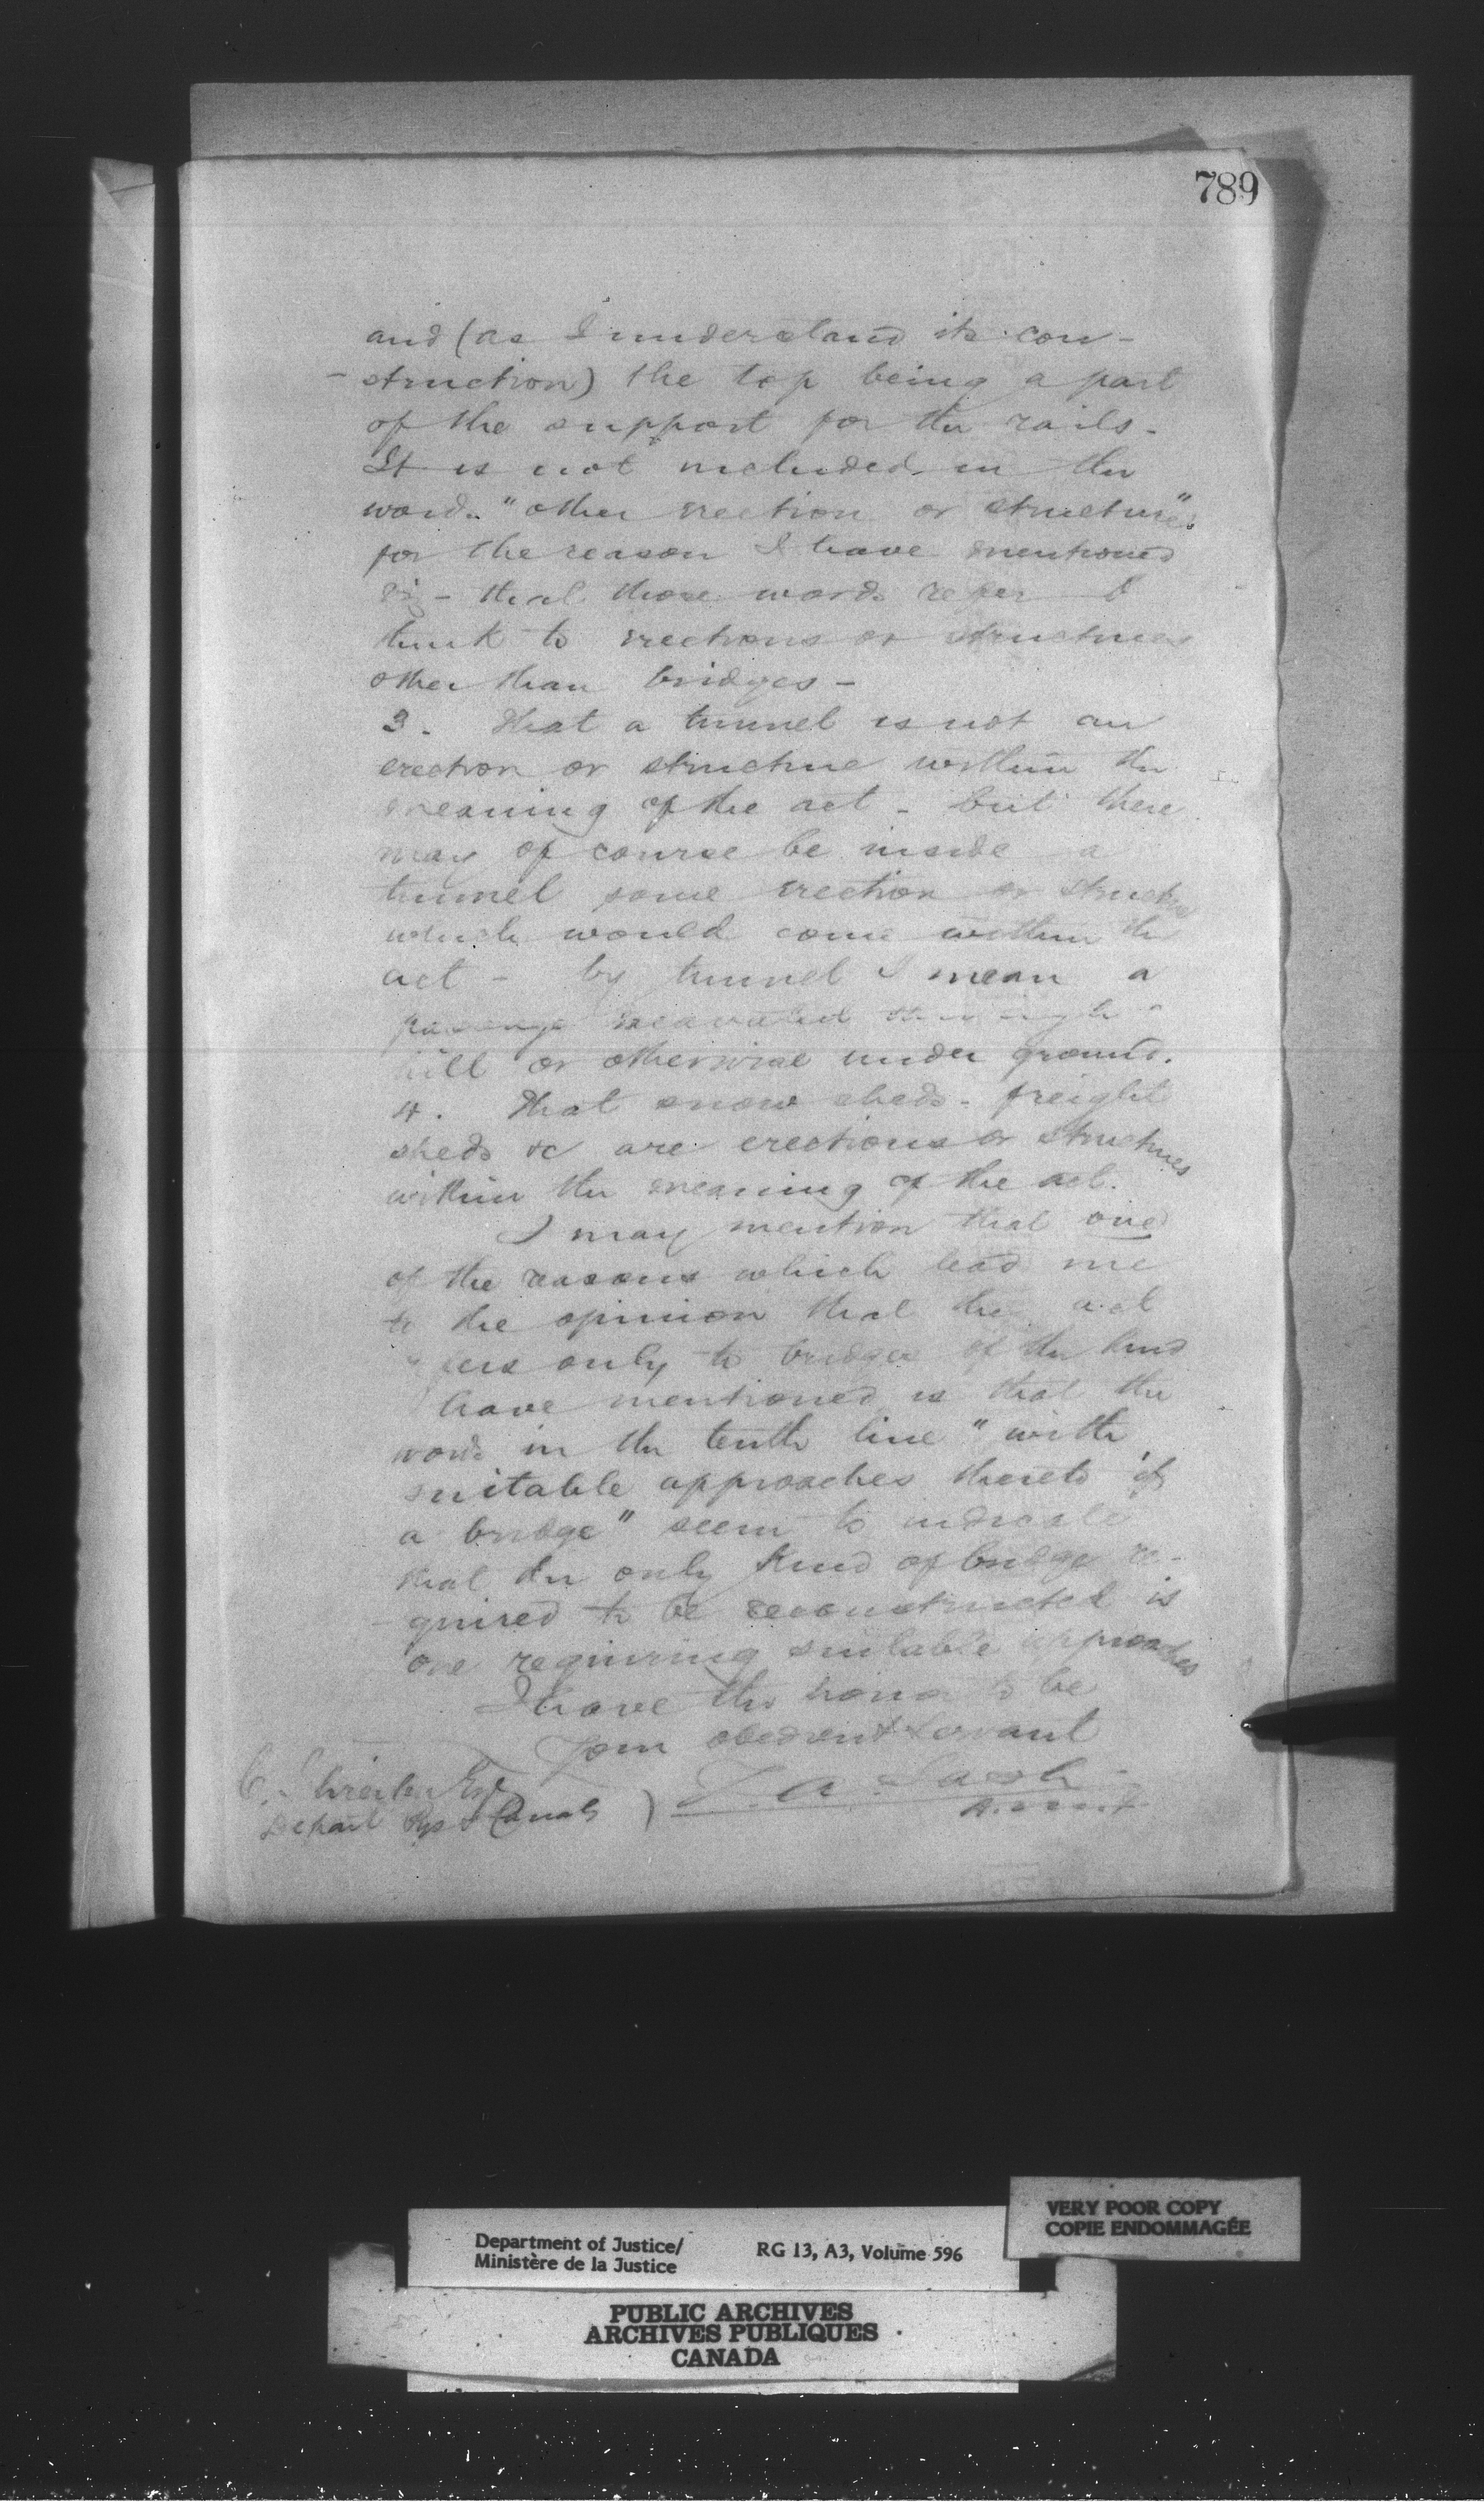 789
and (as I understand its con-
-struction) the top being a part
of the support for the rails.
It is not included in the
words "other erection or structure"
for the reason I have mentioned
viz - that those words refer I
think to erections or structures
other than bridges -
3. That a tunnel is not an
erection or structure within the
meaning of the act - but there
may of course be inside a
tunnel some erection or structure
which would come within the
act - by tunnel I mean a
passage excavated through a
hill or otherwise under ground.
4. That snow sheds - freight
sheds &c are erections or structures
within the meaning of the act.
I may mention that one
of the reasons which lead me
to the opinion that the act
refers only to bridges of the kind
I have mentioned is that the
words in the tenth line "with
suitable approaches thereto if
a bridge" seem to indicate
that the only kind of bridge re-
-quired to be reconstructed is
one requiring suitable approaches
I have the honor to be
Your obedient Servant
Z. A. Lash
C. Schreiber Esq
Depart Rys & Canals )
VERY POOR COPY
COPIE ENDOMMAGÉE
Department of Justice/
Ministère de la Justice
RG 13, A3, Volume 596
PUBLIC ARCHIVES
ARCHIVES PUBLIQUES
CANADA